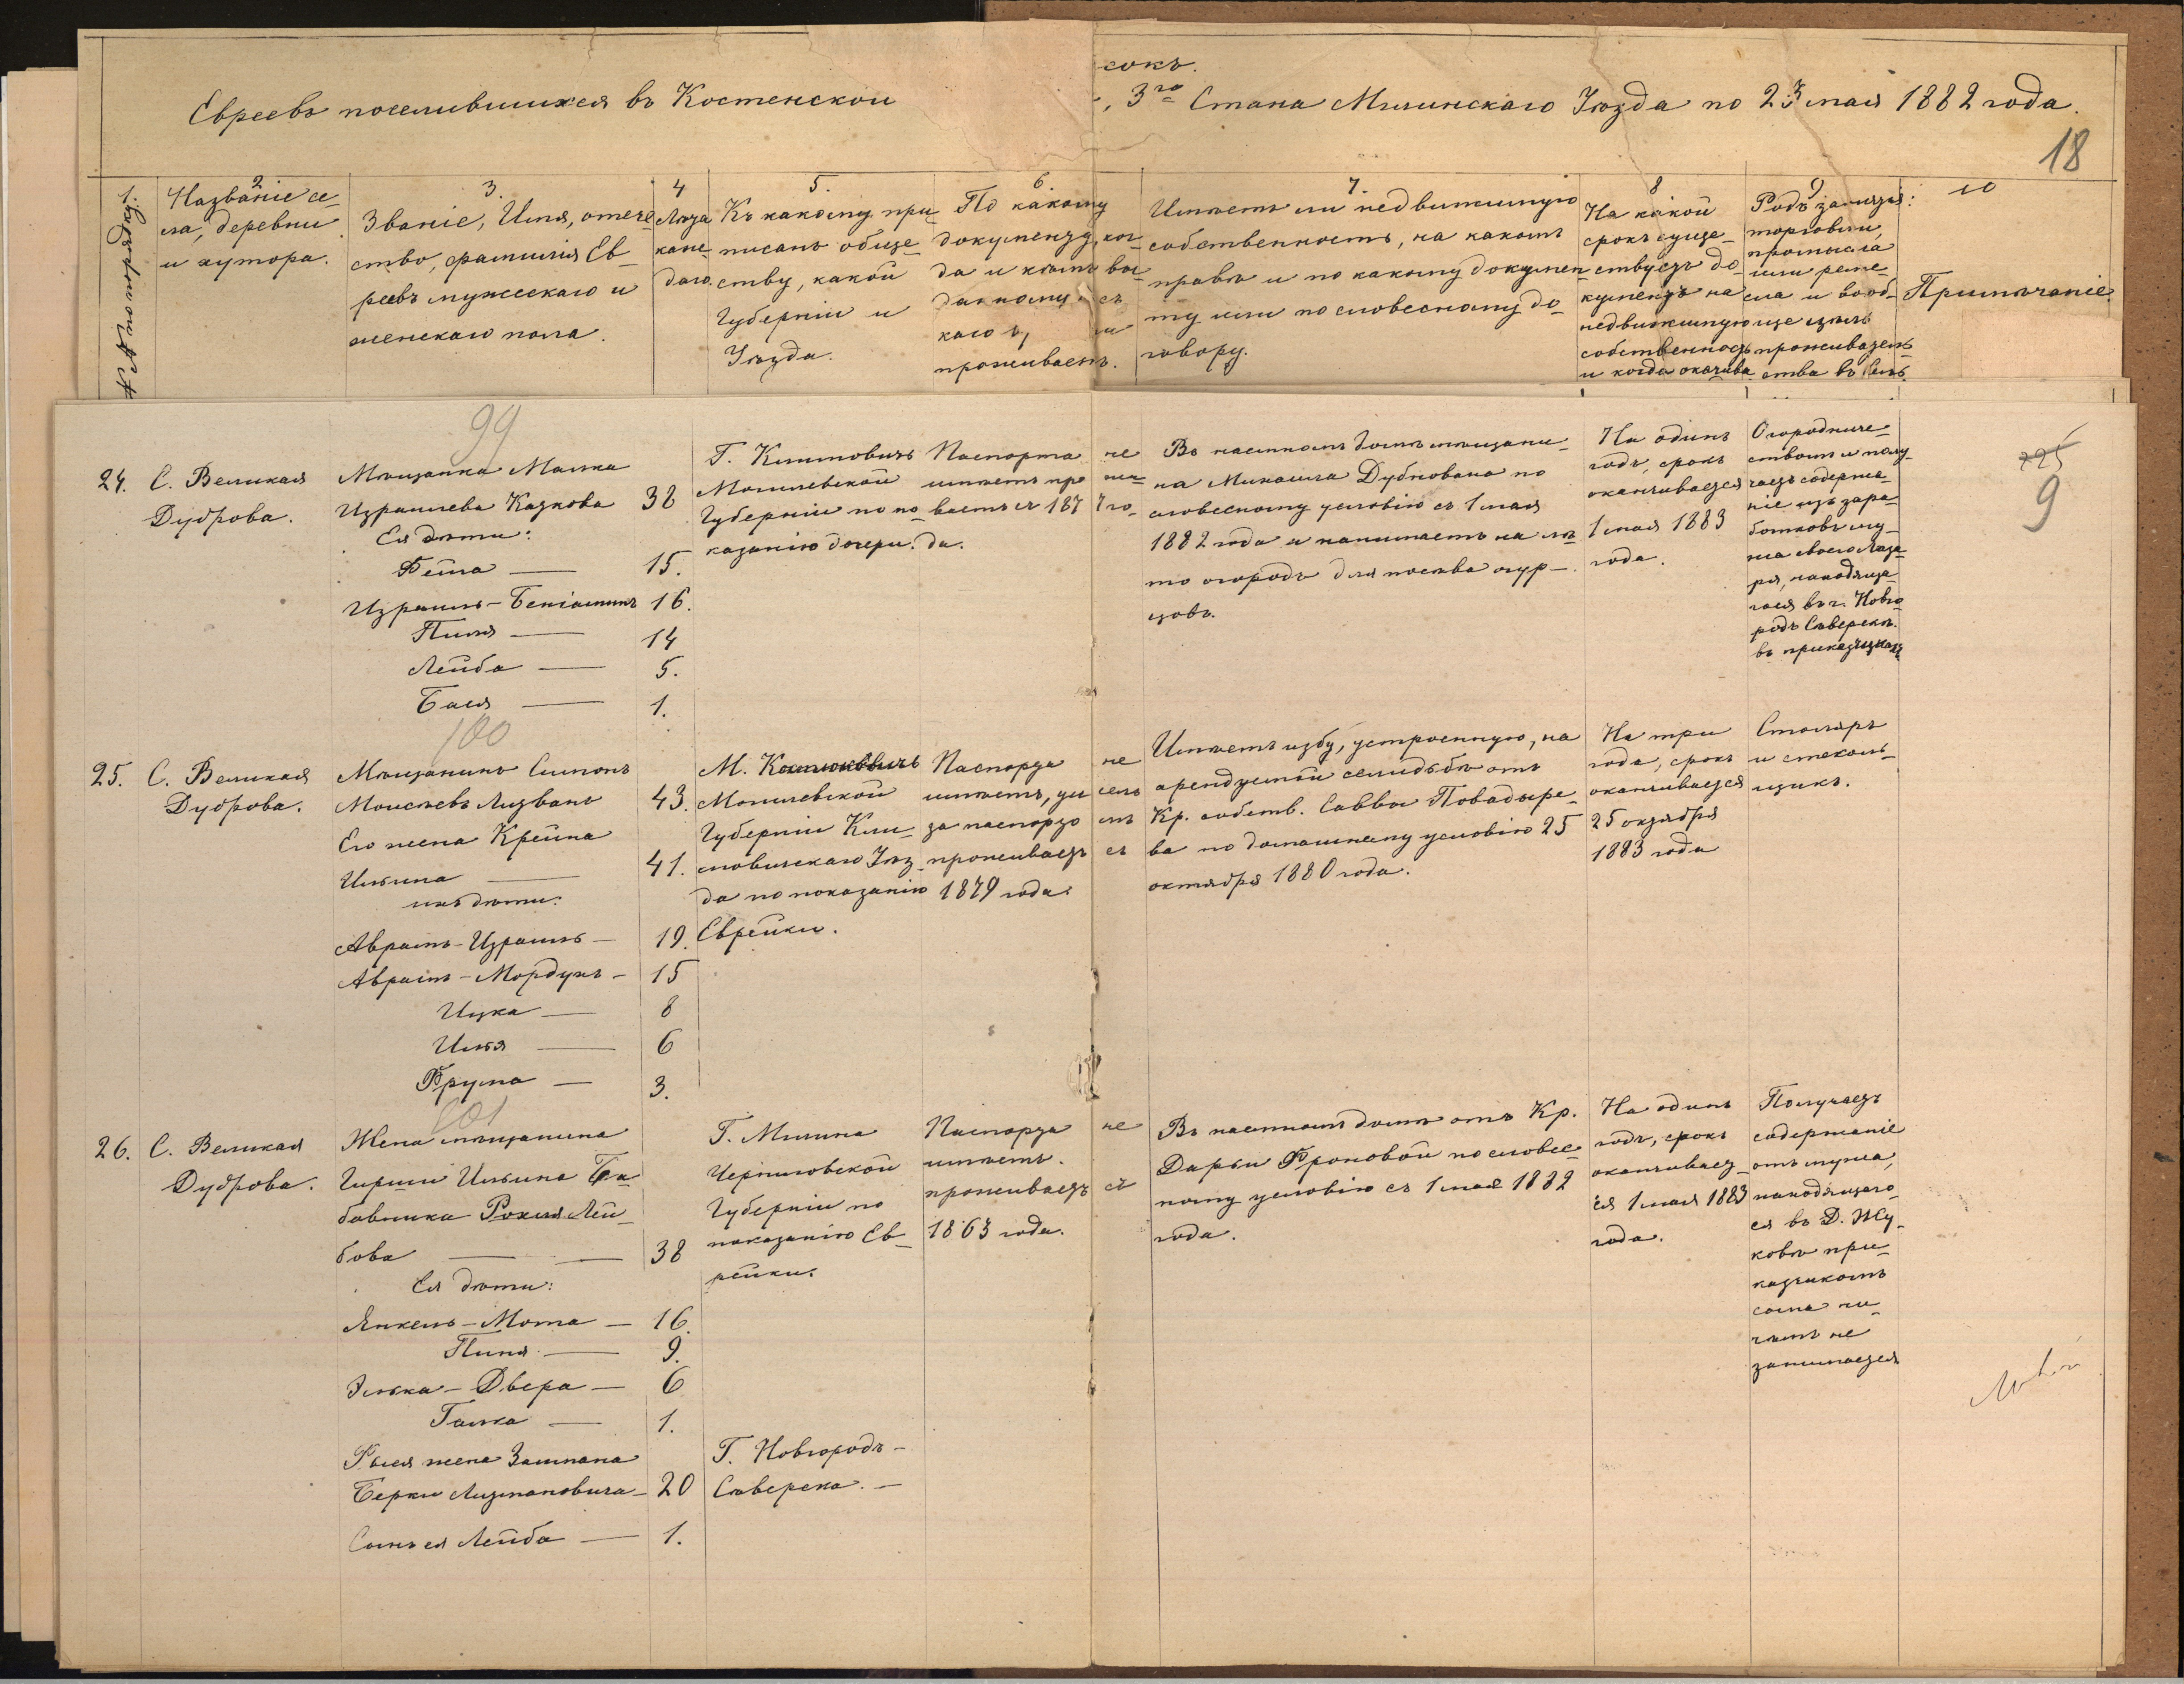 сокъ.
Евреевъ поселившихся въ Костенской
3го Стана Мглинскаго Уѣзда по 23 мая 1882 года.
18
1.
№№ по порядку.
2
Названіе се-
ла, деревни
и хутора.
3.
Званіе, Имя, отече-
ство, фамилія Ев-
реевъ мужескаго и
женскаго пола.
4
Лѣта
каж-
даго.
5.
Къ какому при-
писанъ обще-
ству, какой
Губерніи и
Уѣзда.
6.
По какому
документу, ког-
да и кѣмъ вы-
данному и съ
какого
проживаетъ.
7.
Имѣетъ ли недвижимую
собственность, на какомъ
правѣ и по какому докумен-
ту или по словесному до-
говору.
8
На какой
срокъ суще-
ствуетъ до-
кументъ на
недвижимую
собственность
и когда оканчива
9
Родъ занятія:
торговли,
промысла
или реме-
сла и вооб-
ще цѣль
проживатель-
ства въ селѣ.
10
Примѣчаніе.
99
24.
С. Великая
Дуброва.
Мѣщанка Малка
Израилева Казкова 38
Ея дѣти:
Бейла — 15.
Израиль-Беніаминъ 16.
Пиля — 14
Лейба — 5.
Бася — 1.
Г. Климовичъ
Могилевской
Губерніи по по-
казанію дочери.
Паспорта не
имѣетъ про жи-
ваетъ съ 187 7 го-
да.
Въ наемномъ домѣ мѣщани-
на Михаила Дубкована по
словесному условію съ 1 мая
1882 года и нанимаетъ на лѣ-
то огородъ для посѣва огур-
цовъ.
На одинъ
годъ, срокъ
оканчивается
1 мая 1883
года.
Огородниче-
ствомъ и полу-
чаетъ содержа-
ніе изъ зара-
ботковъ му-
жа своего Лаза-
ря, находяща-
гося въ г. Новго-
родъ Сѣверскѣ.
въ приказчикахъ
225
9
100
25.
С. Великая
Дуброва.
Мѣщанинъ Симонъ
Моисѣевъ Лизванъ 43.
Его жена Крейна
Ильина — 41.
ихъ дѣти:
Аврамъ-Израиль — 19.
Аврамъ-Мордухъ — 15
Ицка — 8
Илья — 6
Фрума — 3.
М. Костюковичъ
Могилевской
Губерніи Кли-
мовичскаго Уѣз-
да по показанію
Еврейки.
Паспорта не
имѣетъ,
за паспорто мъ
проживаетъ съ
1879 года.
Имѣетъ избу, устроенную, на
арендуемой селидьбѣ отъ
Кр. собств. Саввы Повадыре-
ва по домашнему условію 25
октября 1880 года.
На три
года, срокъ
оканчивается
25 октября
1883 года
Столяръ
и стеколь-
щикъ.
101
26.
С. Великая
Дуброва.
Жена мѣщанина
Гирши Ильина Ба-
бовника Рохля Лей-
бова — 38
Ея дѣти:
Янкель-Мота — 16.
Пиня — 9.
Элька-Двера — 6
Галка — 1.
Рыся жена Залмана
Берки Лизмановича — 20
Сынъ ея Лейба — 1.
Г. Мглина
Черниговской
Губерніи по
показанію Ев-
рейки.
Г. Новгородъ-
Сѣверска. —
Паспорта не
имѣетъ.
проживаетъ съ
1863 года.
Въ наемномъ домѣ отъ Кр.
Дарьи Фроковой по словес-
ному условію съ 1 мая 1882
года.
На одинъ
годъ, срокъ
оканчивает-
ся 1 мая 1883
года.
Получаетъ
содержаніе
отъ мужа,
находящаго-
ся въ Д. Жу-
ковѣ при-
казчикомъ
сама ни-
чѣмъ не
занимается